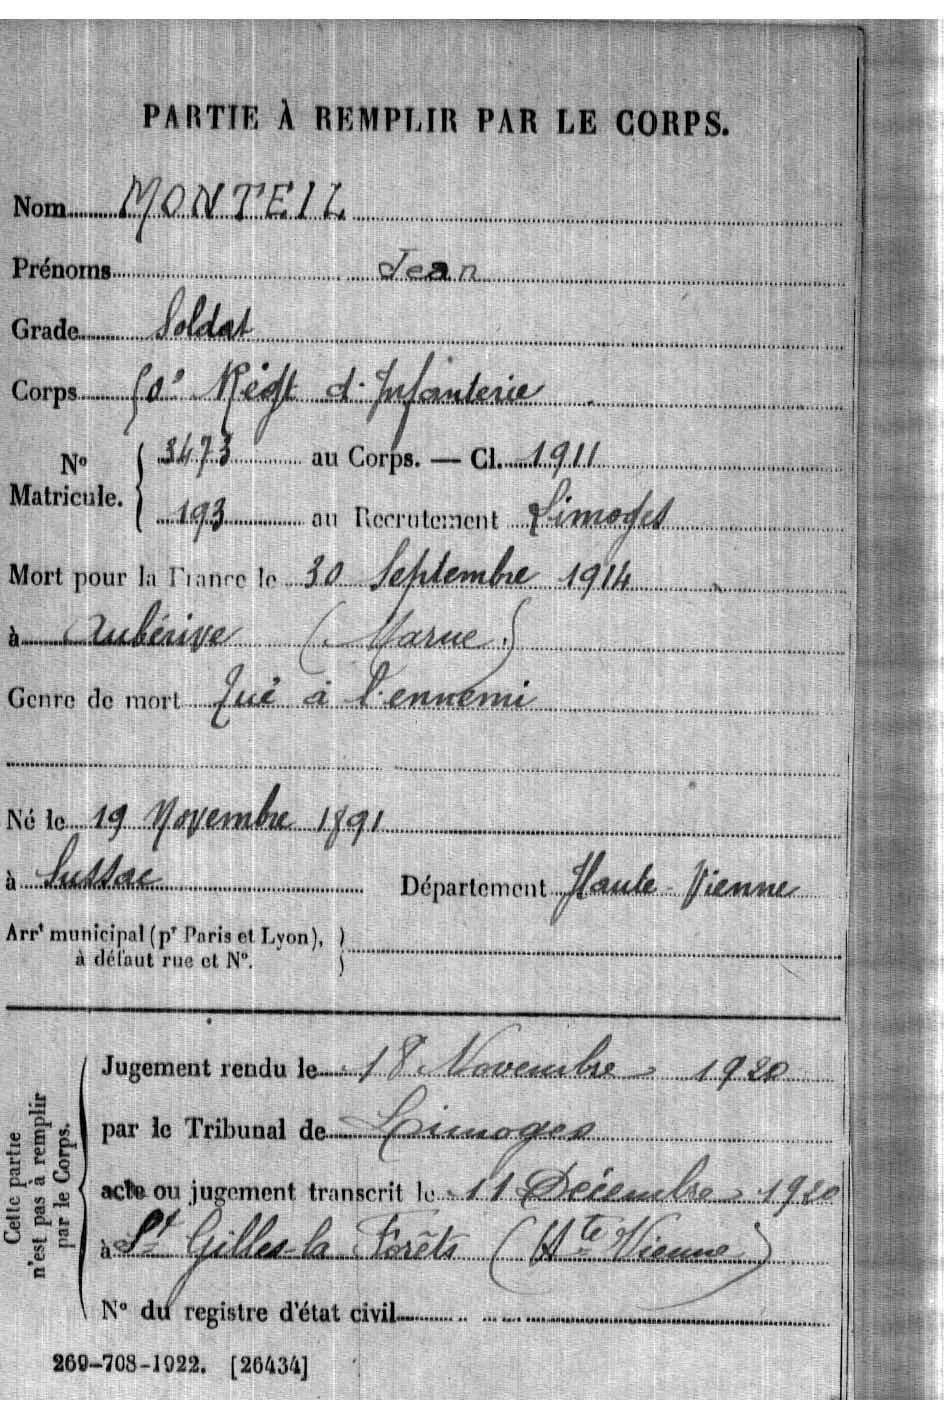 PARTIE À REMPLIR PAR LE CORPS.
Nom MONTEIL
Prénoms Jean
Grade Soldat
Corps 50e Régt d'Infanterie
No Matricule. 3473 au Corps. — Cl. 1911
193 au Recrutement Limoges
Mort pour la France le 30 Septembre 1914
à Aubérive (Marne)
Genre de mort Tué à l'ennemi
Né le 19 Novembre 1891
à Sussac Département Haute-Vienne
Arrt municipal (pr Paris et Lyon),
à défaut rue et No.
Cette partie n'est pas à remplir par le Corps.
Jugement rendu le 18 Novembre 1920
par le Tribunal de Limoges
acte ou jugement transcrit le 11 Décembre 1920
à St Gilles-la Forêts (Hte Vienne)
No du registre d'état civil
269-708-1922. [26434]